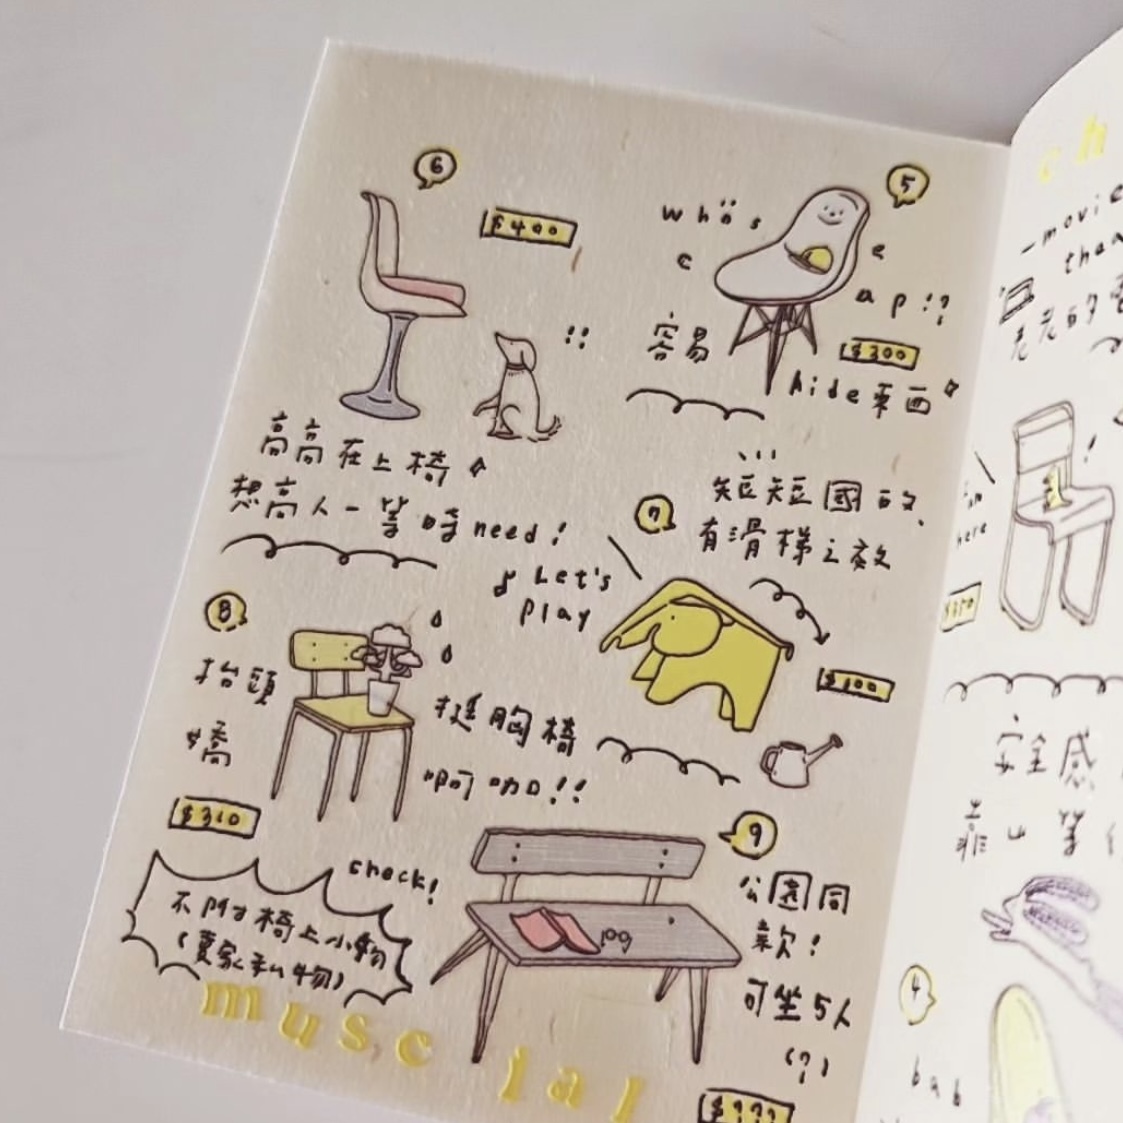 6
$400
高高在上椅
想高人一等時need!
5
who's
c
e
ap!?
容易
$300
hide東西
7
短短國的
有滑梯之效
Let's
play
$100
8
抬頭
挺胸椅
啊咖!!
$310
check!
不附椅上小物
(賣家私物)
9
公園同
款!
可坐5人
(?)
$???
musc
ial
ch
-movie
I am
here
$350
安全感
靠山等
4
bab